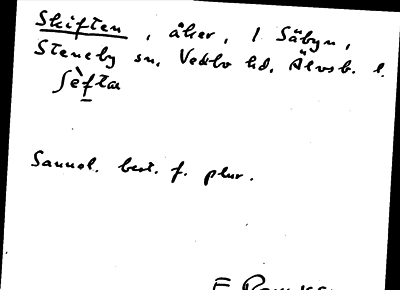 Skiften, åker, 1 Säbyn,
Steneby sn, Vedbo hd, Älvsb. l.
ʃèfta
Sannol. best. f. plur.